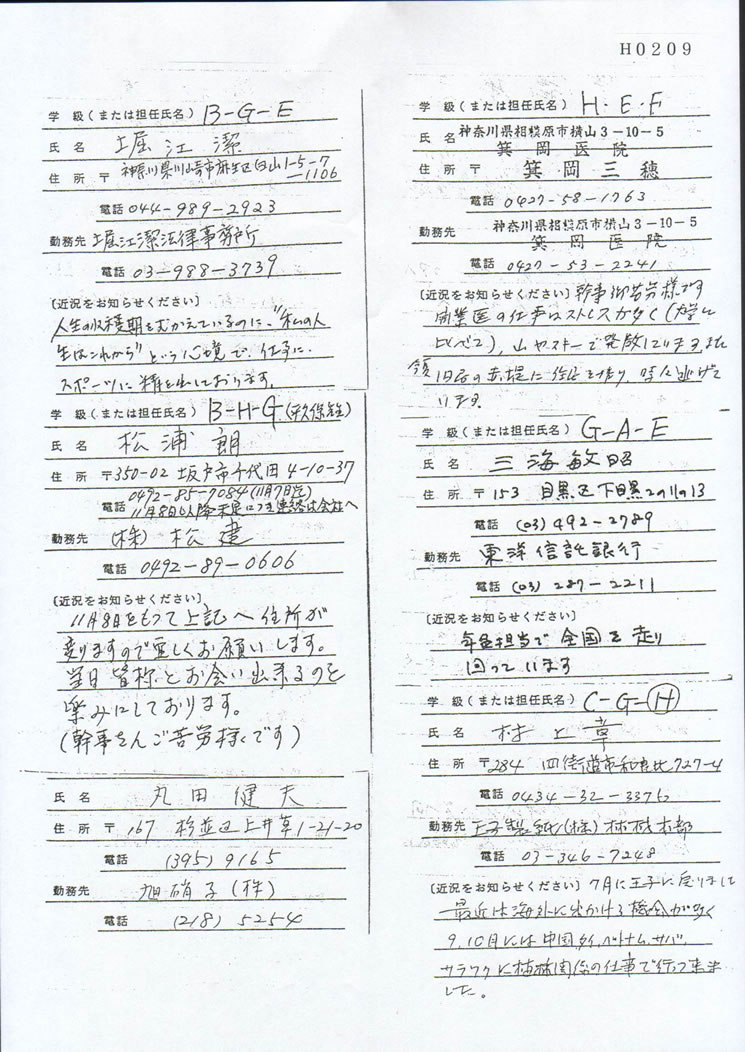 H0209
学 級(または担任氏名) B-G-E
氏 名 堀江 潔
住 所 〒 神奈川県川崎市麻生区白山1-5-7
-1106
電話 044-989-2923
勤務先 堀江潔法律事務所
電話 03-988-3739
〔近況をお知らせください〕
人生の収穫期をむかえているのに、"私の人
生はこれから"という心境で、仕事に、
スポーツに精を出しております。
学 級(または担任氏名) B-H-G
氏 名 松浦 朗
住 所 〒350-02 坂戸市千代田4-10-37
電話 0492-85-7084(11月7日迄)
11月8日以降未定につき連絡は会社へ
勤務先 (株)松建
電話 0492-89-0606
〔近況をお知らせください〕
11月8日をもって上記へ住所が
変りますので宜しくお願いします。
当日皆様とお会い出来るのを
楽みにしております。
(幹事さんご苦労様です)
氏 名 丸田健夫
住 所 〒 167 杉並区上井草1-21-20
電話 (395) 9165
勤務先 旭硝子(株)
電話 (218) 5254
学 級(または担任氏名) H-E-F
氏 名 神奈川県相模原市横山3-10-5
箕岡医院
住 所 〒 箕岡三穂
電話 0427-58-1763
勤務先 神奈川県相模原市横山3-10-5
箕岡医院
電話 0427-53-2241
〔近況をお知らせください〕幹事御苦労様です
開業医の仕事はストレスが多く(大学に
比べて)、山やスキーで発散しています。また
います。
学 級(または担任氏名) G-A-E
氏 名 三海敏昭
住 所 〒153 目黒区下目黒2の11の13
電話 (03) 492-2789
勤務先 東洋信託銀行
電話 (03) 287-2211
〔近況をお知らせください〕
年金担当で全国を走り
回っています
学 級(または担任氏名) C-G-H
氏 名 村上章
住 所 〒284 四街道市和良比727-4
電話 0434-32-3376
勤務先 王子製紙(株)林材本部
電話 03-346-7248
〔近況をお知らせください〕7月に王子に戻りまして
最近は海外に出かける機会が多く
9、10月には中国、タイ、ベトナム、サバ、
サラワクに植林関係の仕事で行って来ま
した。